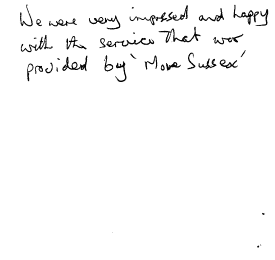 We were very impressed and happy
with the service that was
provided by 'Move Sussex'